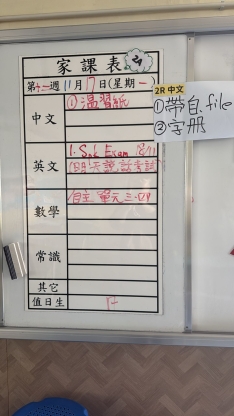 家課表
第十一週11月17日(星期一)
中文
①溫習紙
英文
1. Spk Exam 18/11
(明天說話考試)
數學
自主 單元三
常識
其它
值日生
17
2R 中文
①帶自 file
②字冊